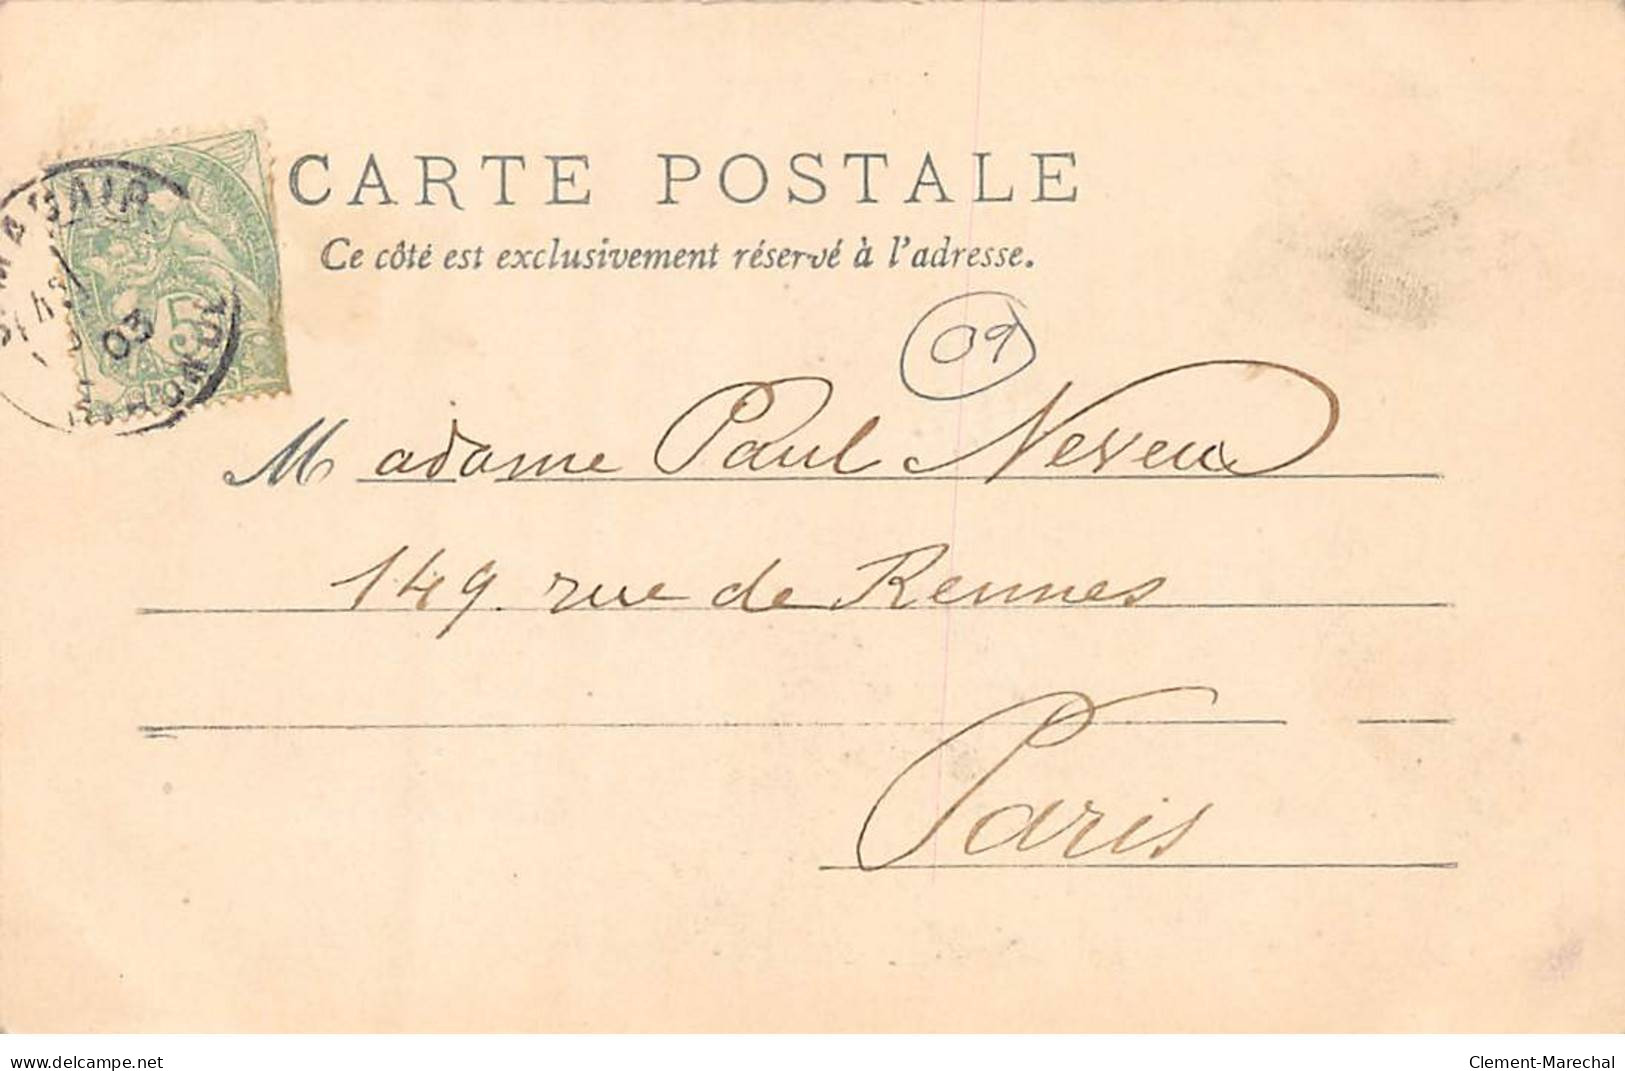 CARTE POSTALE
Ce côté est exclusivement réservé à l'adresse.
09
03
5
Madame Paul Neveux
149. rue de Rennes
Paris
www.delcampe.net
Clement-Marechal